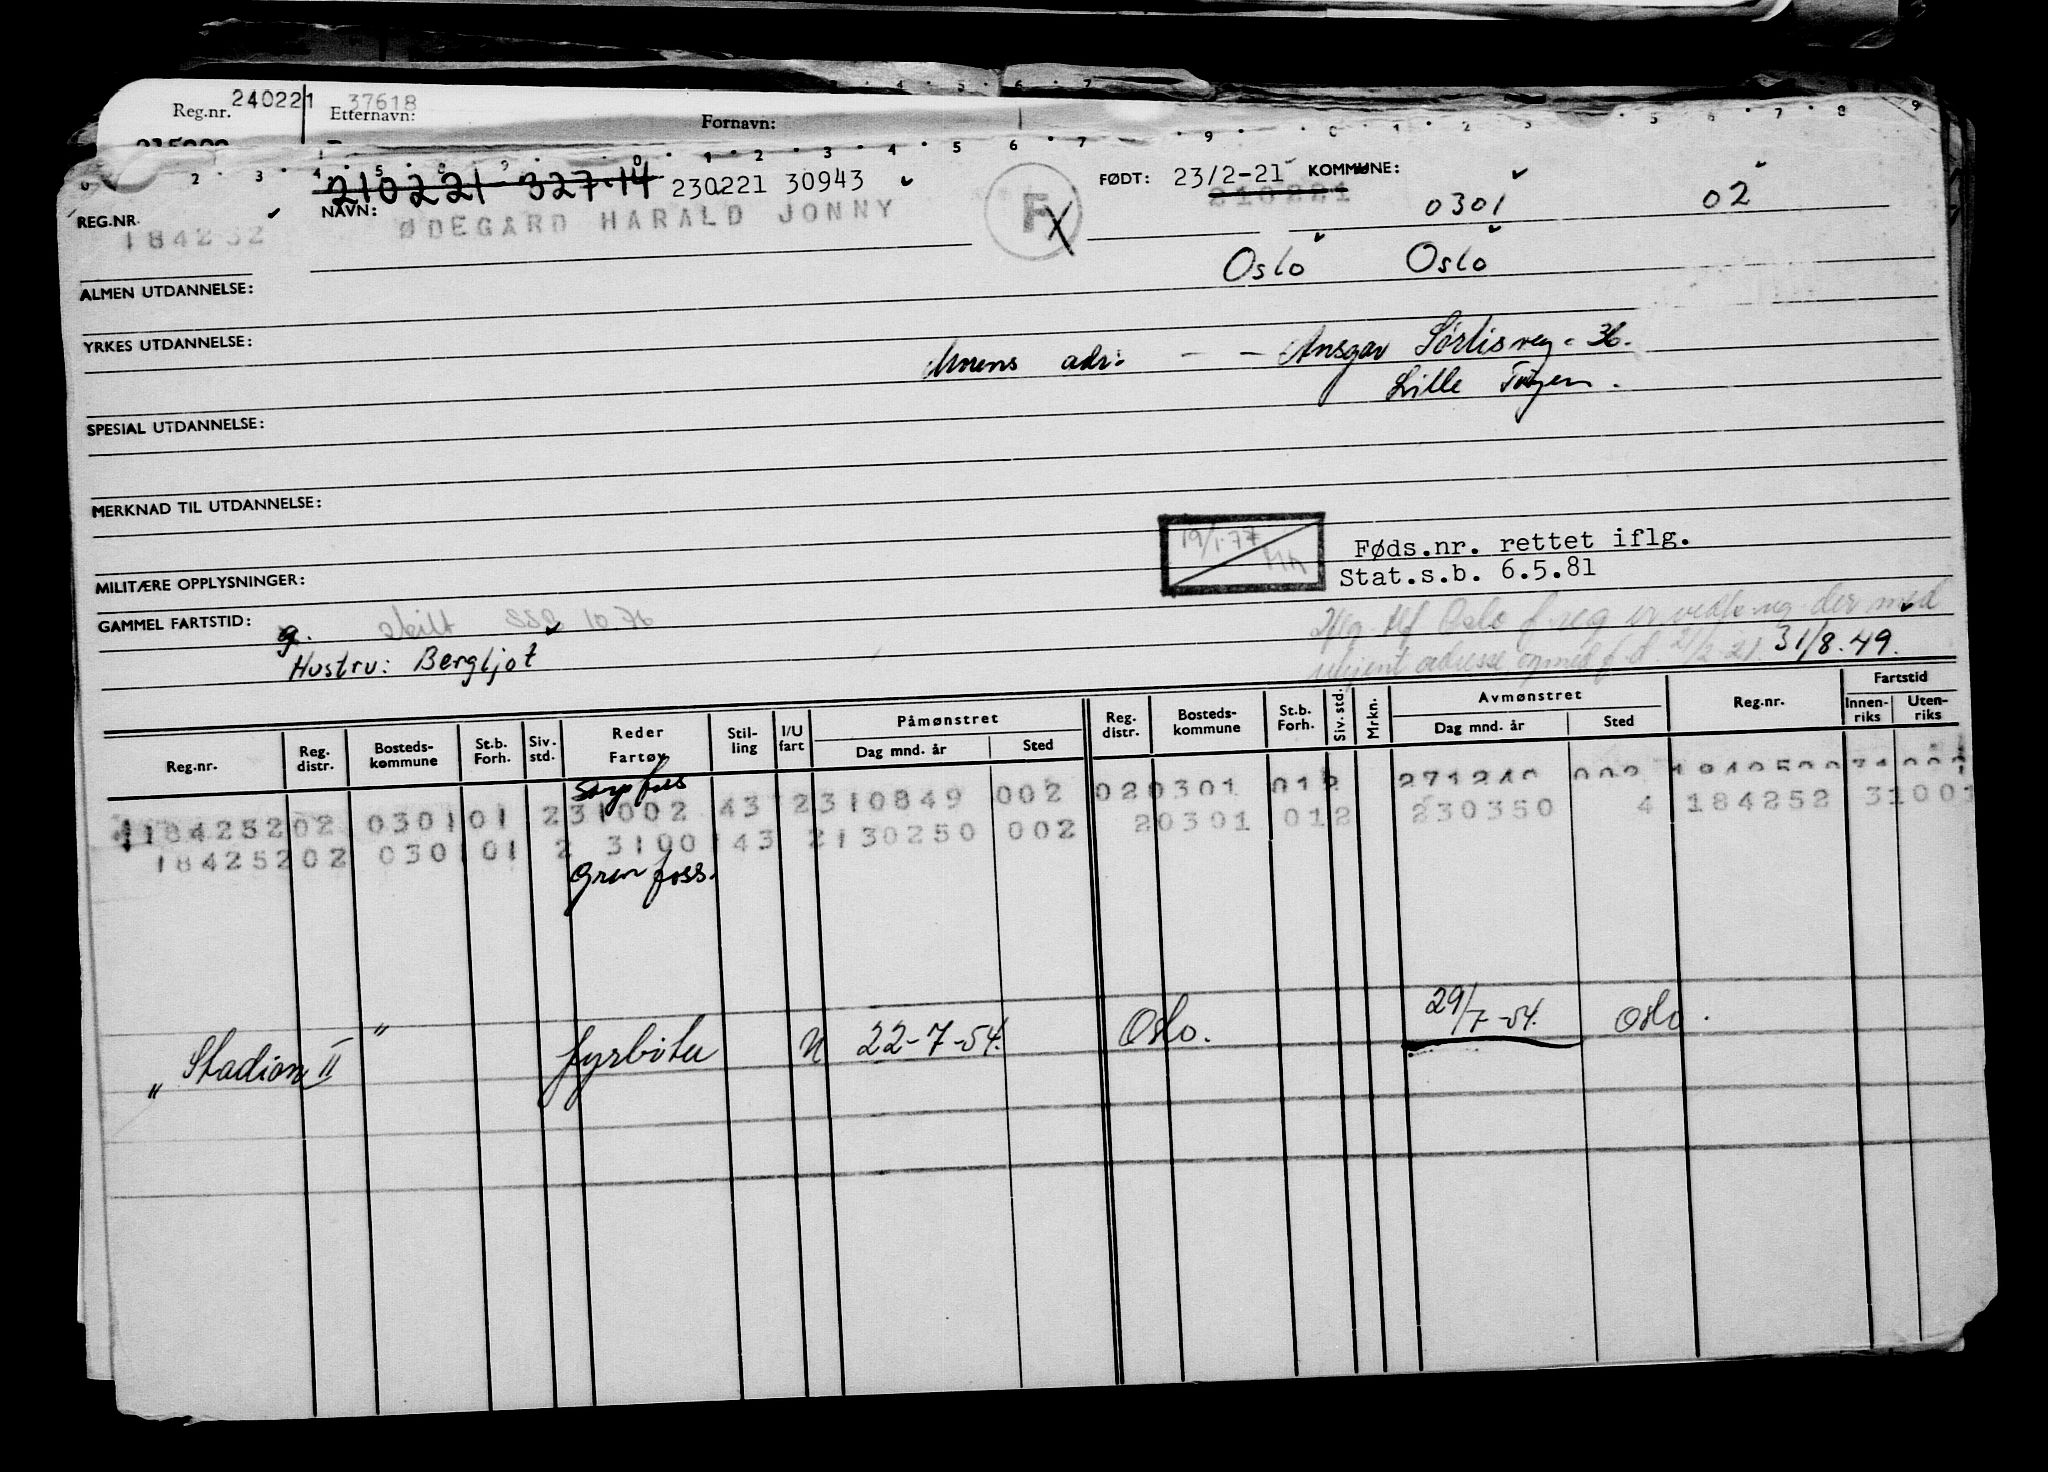 Reg.nr. 240221 37618
Etternavn: Fornavn:
210221 327.14 230221 30943 FØDT: 23/2-21 KOMMUNE:
210221 0301 02
REG.NR. NAVN: ØDEGARD HARALD JONNY F
184252
Oslo Oslo
ALMEN UTDANNELSE:
YRKES UTDANNELSE:
Morens adr: - - Ansgar Sørlisvey. 36.
Lille Tøyen.
SPESIAL UTDANNELSE:
MERKNAD TIL UTDANNELSE:
19/1-77
Føds.nr. rettet iflg.
Stat.s.b. 6.5.81
MILITÆRE OPPLYSNINGER:
GAMMEL FARTSTID: g. skilt 10.76
Oslo f.reg er der med
Hustru: Bergljot adresse 21/2-21. 31/8.49.
Reg.nr. Reg. distr. Bosteds-kommune St.b. Forh. Siv. std. Reder Fartøy Stil-ling I/U fart Påmønstret Dag mnd. år Sted Reg. distr. Bosteds-kommune St.b. Forh. Siv. std. Mrkn. Avmønstret Dag mnd. år Sted Reg.nr. Fartstid Innen-riks Uten-riks
118425202 030101 231002 43 2310849 002 020301 012 271240 002
18425202 030101 2 3100 43 2130250 002 20301 012 230350 4 184252 31001
Grenfoss.
" Stadion II " fyrbøter U 22-7-54. Oslo. 29/7-54. Oslo.